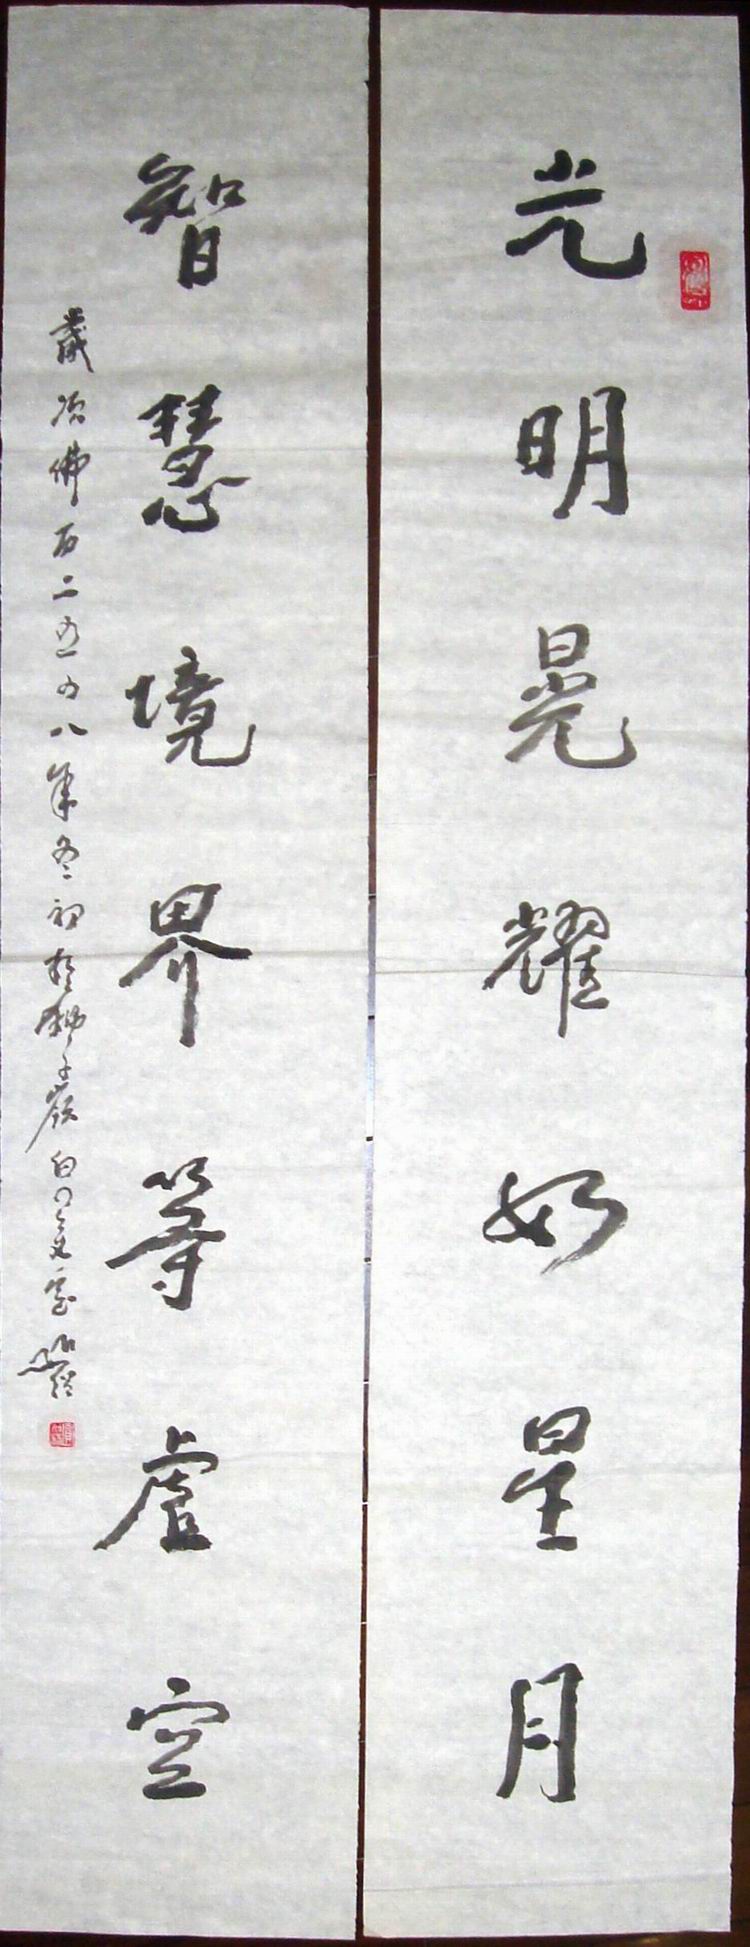 光明晃耀如星月
智慧境界等虛空
歲次佛百二五四八年冬初於獅子嶺白雲